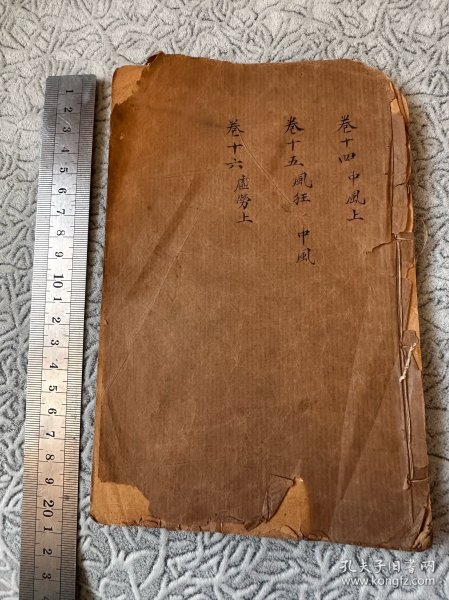 卷十四中風上
卷十五風狂 中風
卷十六虛勞上
1 2 3 4 5 6 7 8 9 10 1 2 3 4 5 6 7 8 9 20 1 2 3 4
孔夫子旧书网
www.kongfz.com